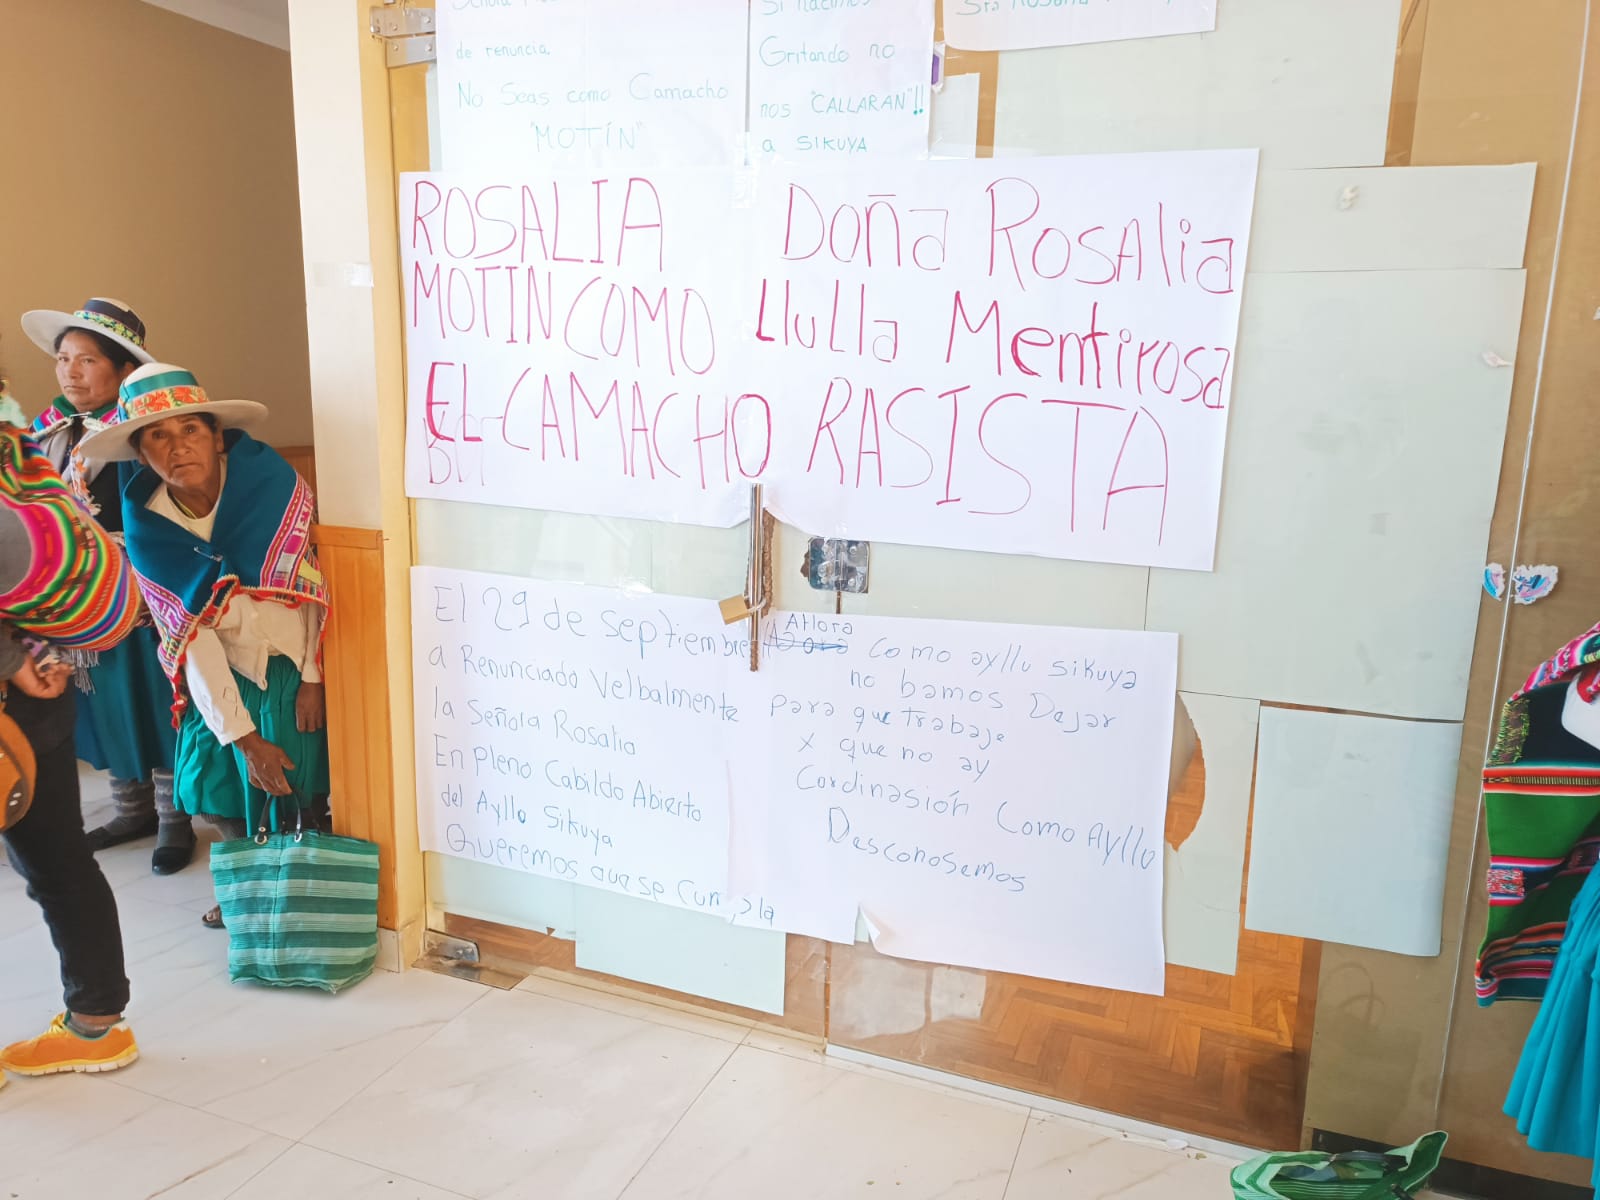 de renuncia.
No Seas como Camacho
"MOTÍN"
Si nacimos
Gritando no
nos "CALLARAN"!!
a SIKUYA
ROSALIA
MOTIN COMO
EL CAMACHO
Doña ROSAlia
LLuLLa Mentirosa
RASISTA
El 29 de septiembre
a Renunciado Velbalmente
la Señora Rosalia
En pleno Cabildo Abierto
del Ayllo Sikuya
Queremos que se Cumpla
Ahora como ayllu sikuya
no bamos Dejar
para que trabaje
x que no ay
Cordinasión Como Ayllu
Desconosemos